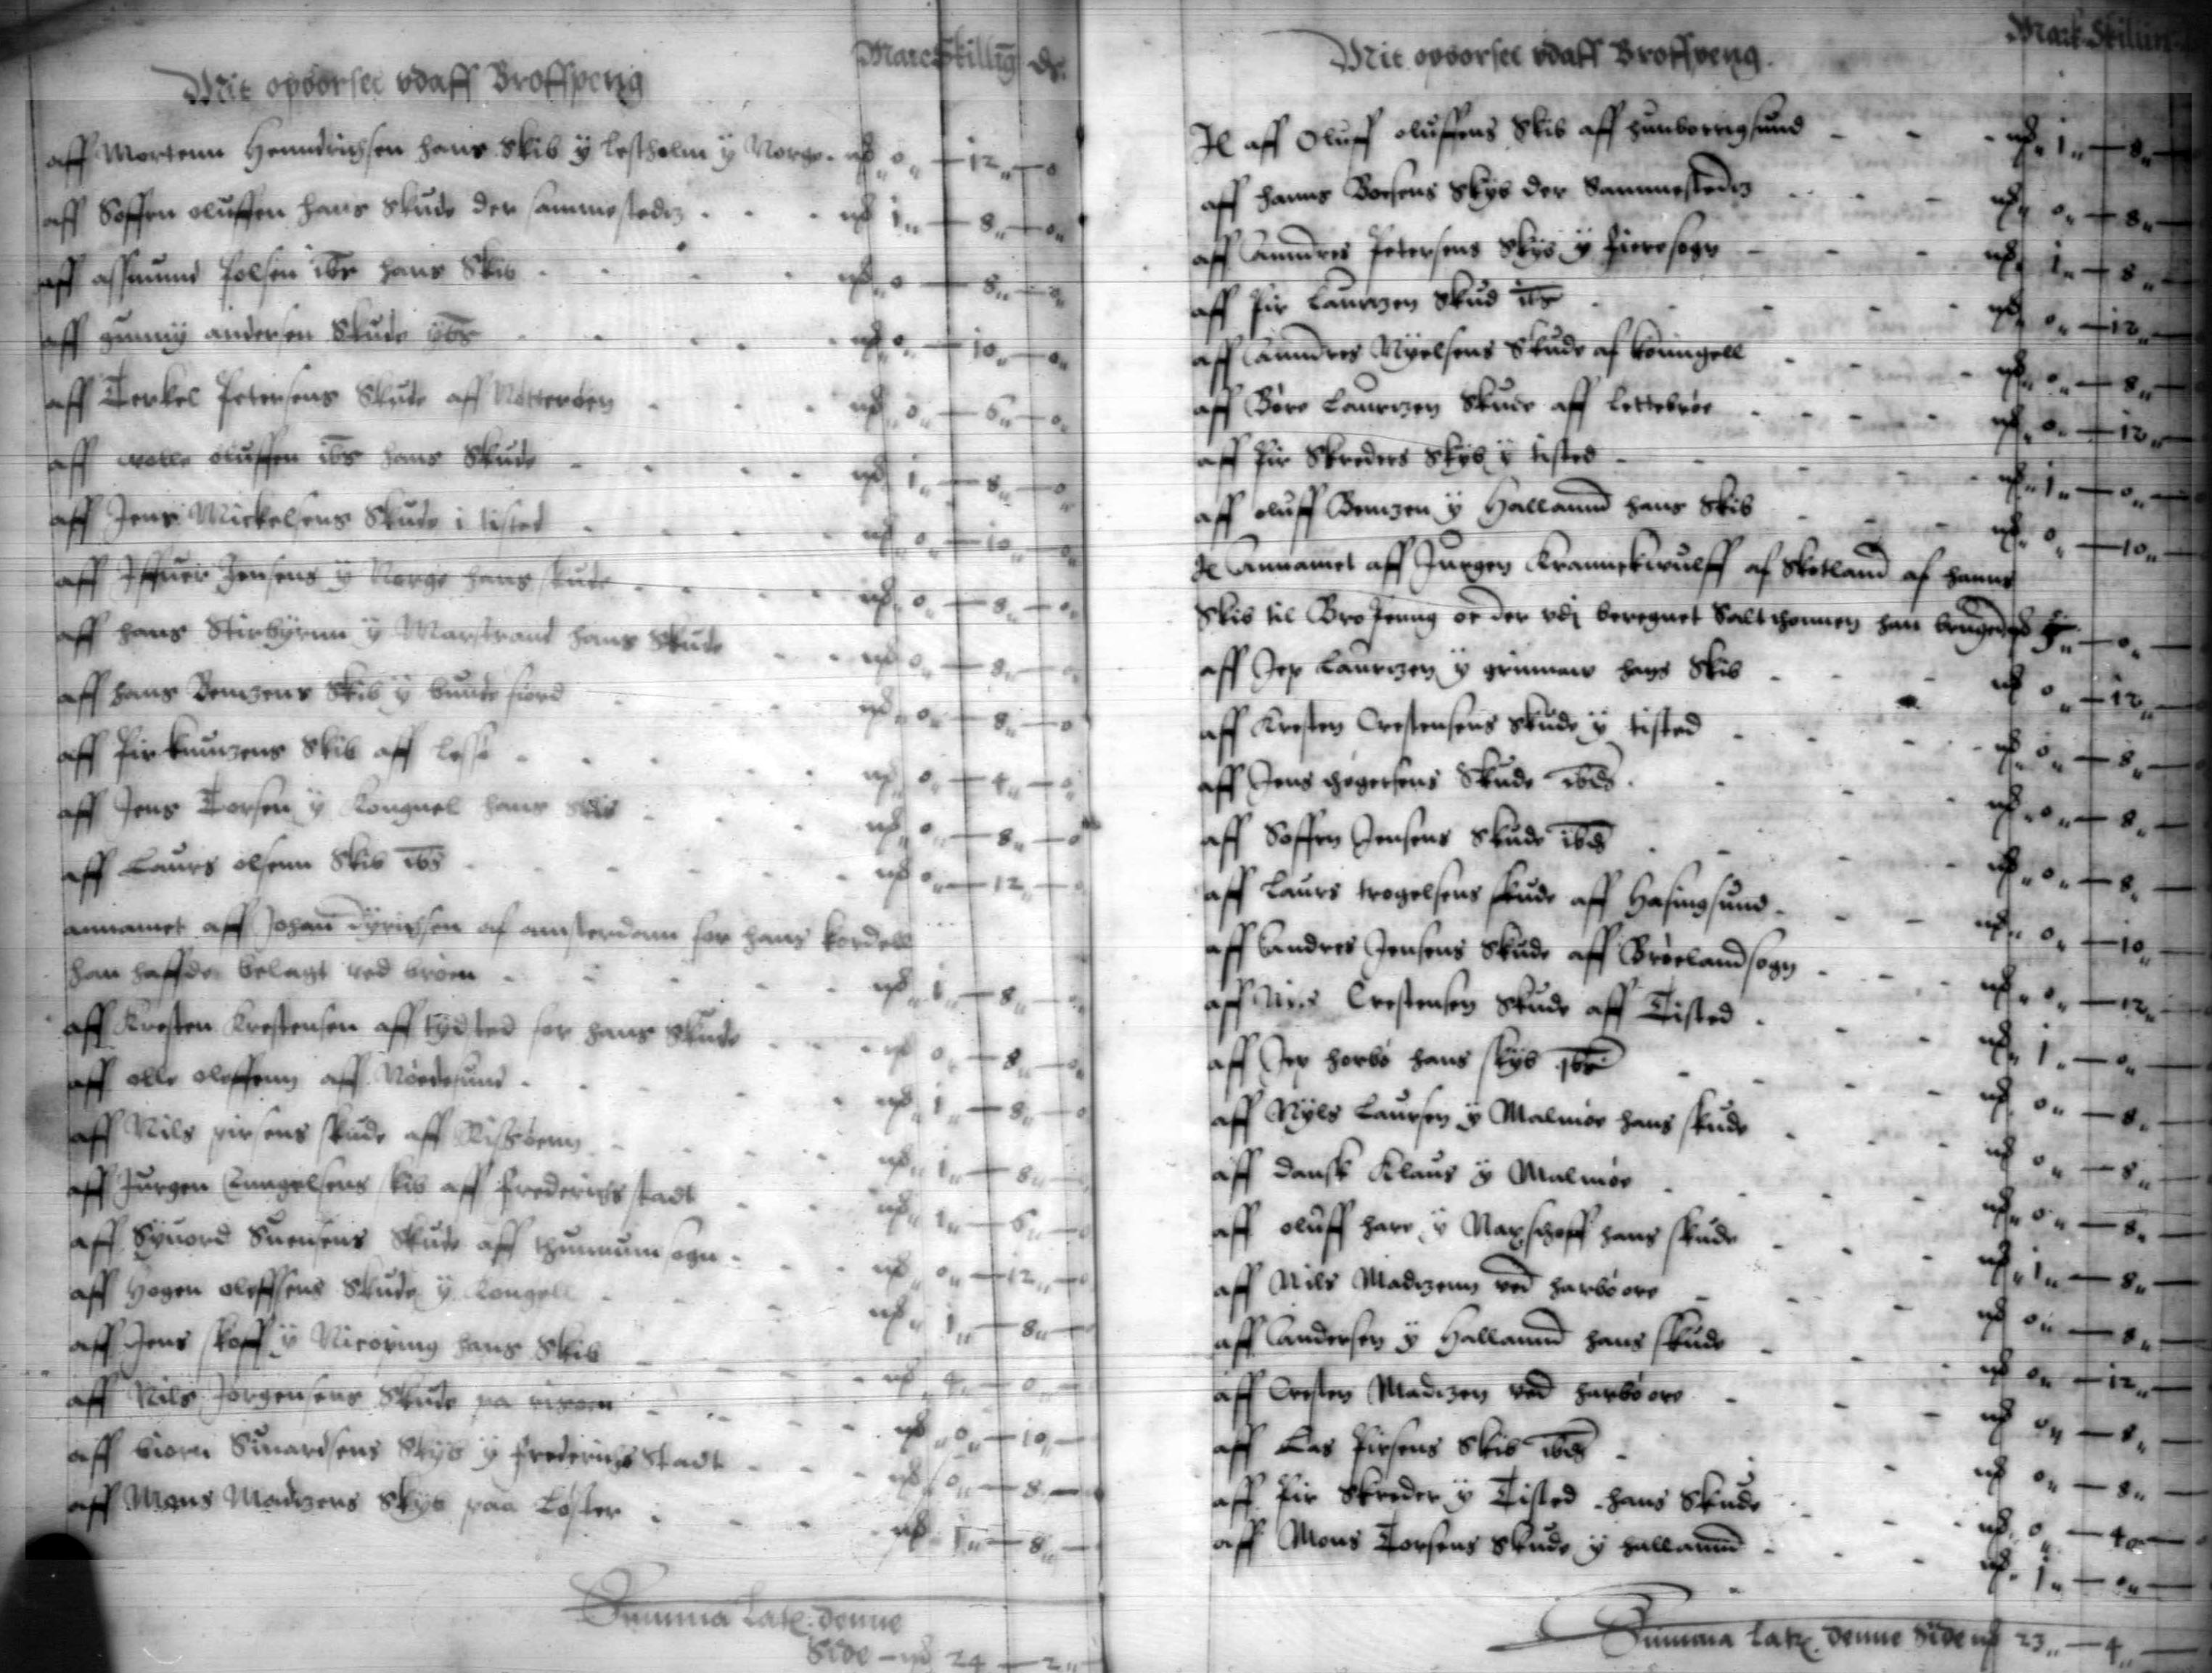 Mit opborset vdaff Broffpeng Marc Skillig d.
aff Mortenn Henndrichsen hans Skib ÿ lestholm ÿ Norge. mk 0 — 12 — 0
aff Soffren oluffen hans Skude der sammestedz mk 1 — 8 — 0
aff assmund Polsen ibr hans Skib mk 0 — 8 — 0
aff gunnÿ andersen Skude ÿbr mk 0 — 10 — 0
aff Terkel Petersens Skude aff Nøtterøen mk 0 — 6 — 0
aff oluffen ibr hans Skude mk 1 — 8 — 0
aff Jens Mickelsens Skude i tisted mk 0 — 10 — 0
aff Iffuer Jensens ÿ Norge hans skude mk 0 — 8 — 0
aff hans Stirbÿrnn ÿ Marstrand hans Skude mk 0 — 8 — 0
aff hans Bentzens Skib ÿ bundefiord mk 0 — 8 — 0
aff Pir knutzens Skib aff lesse mk 0 — 4 — 0
aff Jens Torsen ÿ Kongnel hans Skib mk 0 — 8 — 0
aff Laurs olsenn Skib ibr mk 0 — 12 — 0
annamet aff Johan dÿrichsen af amsterdam for hans kordell
han haffde belagt ved broen mk 1 — 8 — 0
aff Kresten Krestensen aff tÿdsted for hans Skude mk 0 — 8 — 0
aff olle oleffenn aff Nordesund mk 1 — 8 — 0
aff Nils pirsens skude aff mk 1 — 8 — 0
aff Jurgen Enngelsens skib aff frederichsstadt mk 1 — 6 — 0
aff Sÿuord Suensens Skude aff thunnum sogn mk 0 — 12 — 0
aff Hogen oleffsens Skude ÿ Kongell mk 1 — 8 — 0
aff Jens skoff ÿ Nicøping hans Skib mk — 0
aff Nils Jorgensens Skude pa mk 0 — 10
aff biorn Siuardsens Skÿb ÿ frederichs Stadt mk 0 — 8
aff Mons Madtzens Skÿb paa Løster mk 1 — 8
Summa Late. denne
Side — mk 24 — 2
Mit opborset vdaff Broffpeng. Mark Skillin
It aff Oluff oluffens Skib aff hunborrigsund mk 1 — 8
aff hanns Boesens Skÿb der Sammestedz mk 0 — 8
aff Anndres Petersens Skÿb ÿ sogn mk 1 — 8
aff Pir Lauritzen Skud ibr mk 0 — 12
aff Anndres Nÿelsens Skude af koningell mk 0 — 8
aff Børe Lauritzen Skude aff lettebroe mk 0 — 12
aff Pir Skreders Skÿb ÿ tisted mk 1 — 0
aff oluff Bentzen ÿ Hallannd hans Skib mk 0 — 10
It Annamet aff Jurgen Krannekwulff af Skotland af hanns
Skib til Bro Penng oc der vdj beregnet Salt thonnen han brugede mk — 0
aff Jep Lauritzen ÿ hans Skib mk 0 — 12
aff Kresten Crestensens Skude ÿ tisted mk 0 — 8
aff Jens thogersens Skude ibds mk 0 — 8
aff Soffren Jensens Skude ibds mk 0 — 8
aff Laurs trogelsens skude aff Hasingsund mk 0 — 10
aff Andres Jensens Skude aff Brøelandsogn mk 0 — 12
aff Niels Crestensen Skude aff Tisted mk 1 — 0
aff Jep horbo hans skÿb ibr mk 0 — 8
aff Nÿls Laursen ÿ Malmøe hans skude mk 0 — 8
aff dansk Klaus ÿ Malmøe mk 0 — 8
aff oluff hare ÿ hans skude mk 1 — 8
aff Nils Madtzenn ved harboore mk 0 — 8
aff Andersen ÿ Hallannd hans skude mk 0 — 12
aff Cresten Madtzen ved harboore mk 0 — 8
aff Las Pirsens Skib ibds mk 0 — 8
aff Pir Skreder ÿ Tisted hans Skude mk 0 — 4
aff Mons Torsens Skude ÿ hallannd mk 1 — 0
Summa Late. denne Side mk 23 — 4